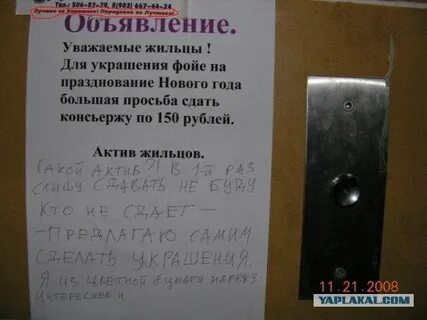 Тел.: 506-87-70, 8(903) 667-44-24
Лучшее из Хорошего! Передовое из Лучшего!
Объявление.
Уважаемые жильцы !
Для украшения фойе на
празднование Нового года
большая просьба сдать
консьержу по 150 рублей.
Актив жильцов.
КАКОЙ АКТИВ?! В 1-Й РАЗ
СЛЫШУ. СДАВАТЬ НЕ БУДУ
КТО НЕ СДАЕТ —
– ПРЕДЛАГАЮ САМИМ
СДЕЛАТЬ УКРАШЕНИЯ.
Я ИЗ ЦВЕТНОЙ БУМАГИ НАРЕЖУ
ИНТЕРЕСНЕЕ
11.21.2008
YAPLAKAL.COM